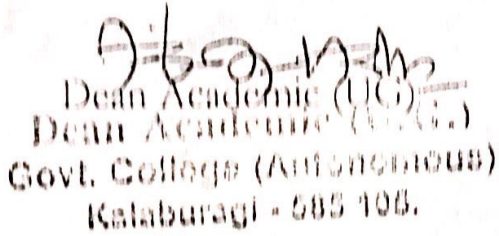 Dean Academic (UG)
Dean Academic (U.G.)
Govt. College (Autonomous)
Kalaburagi - 585 105.